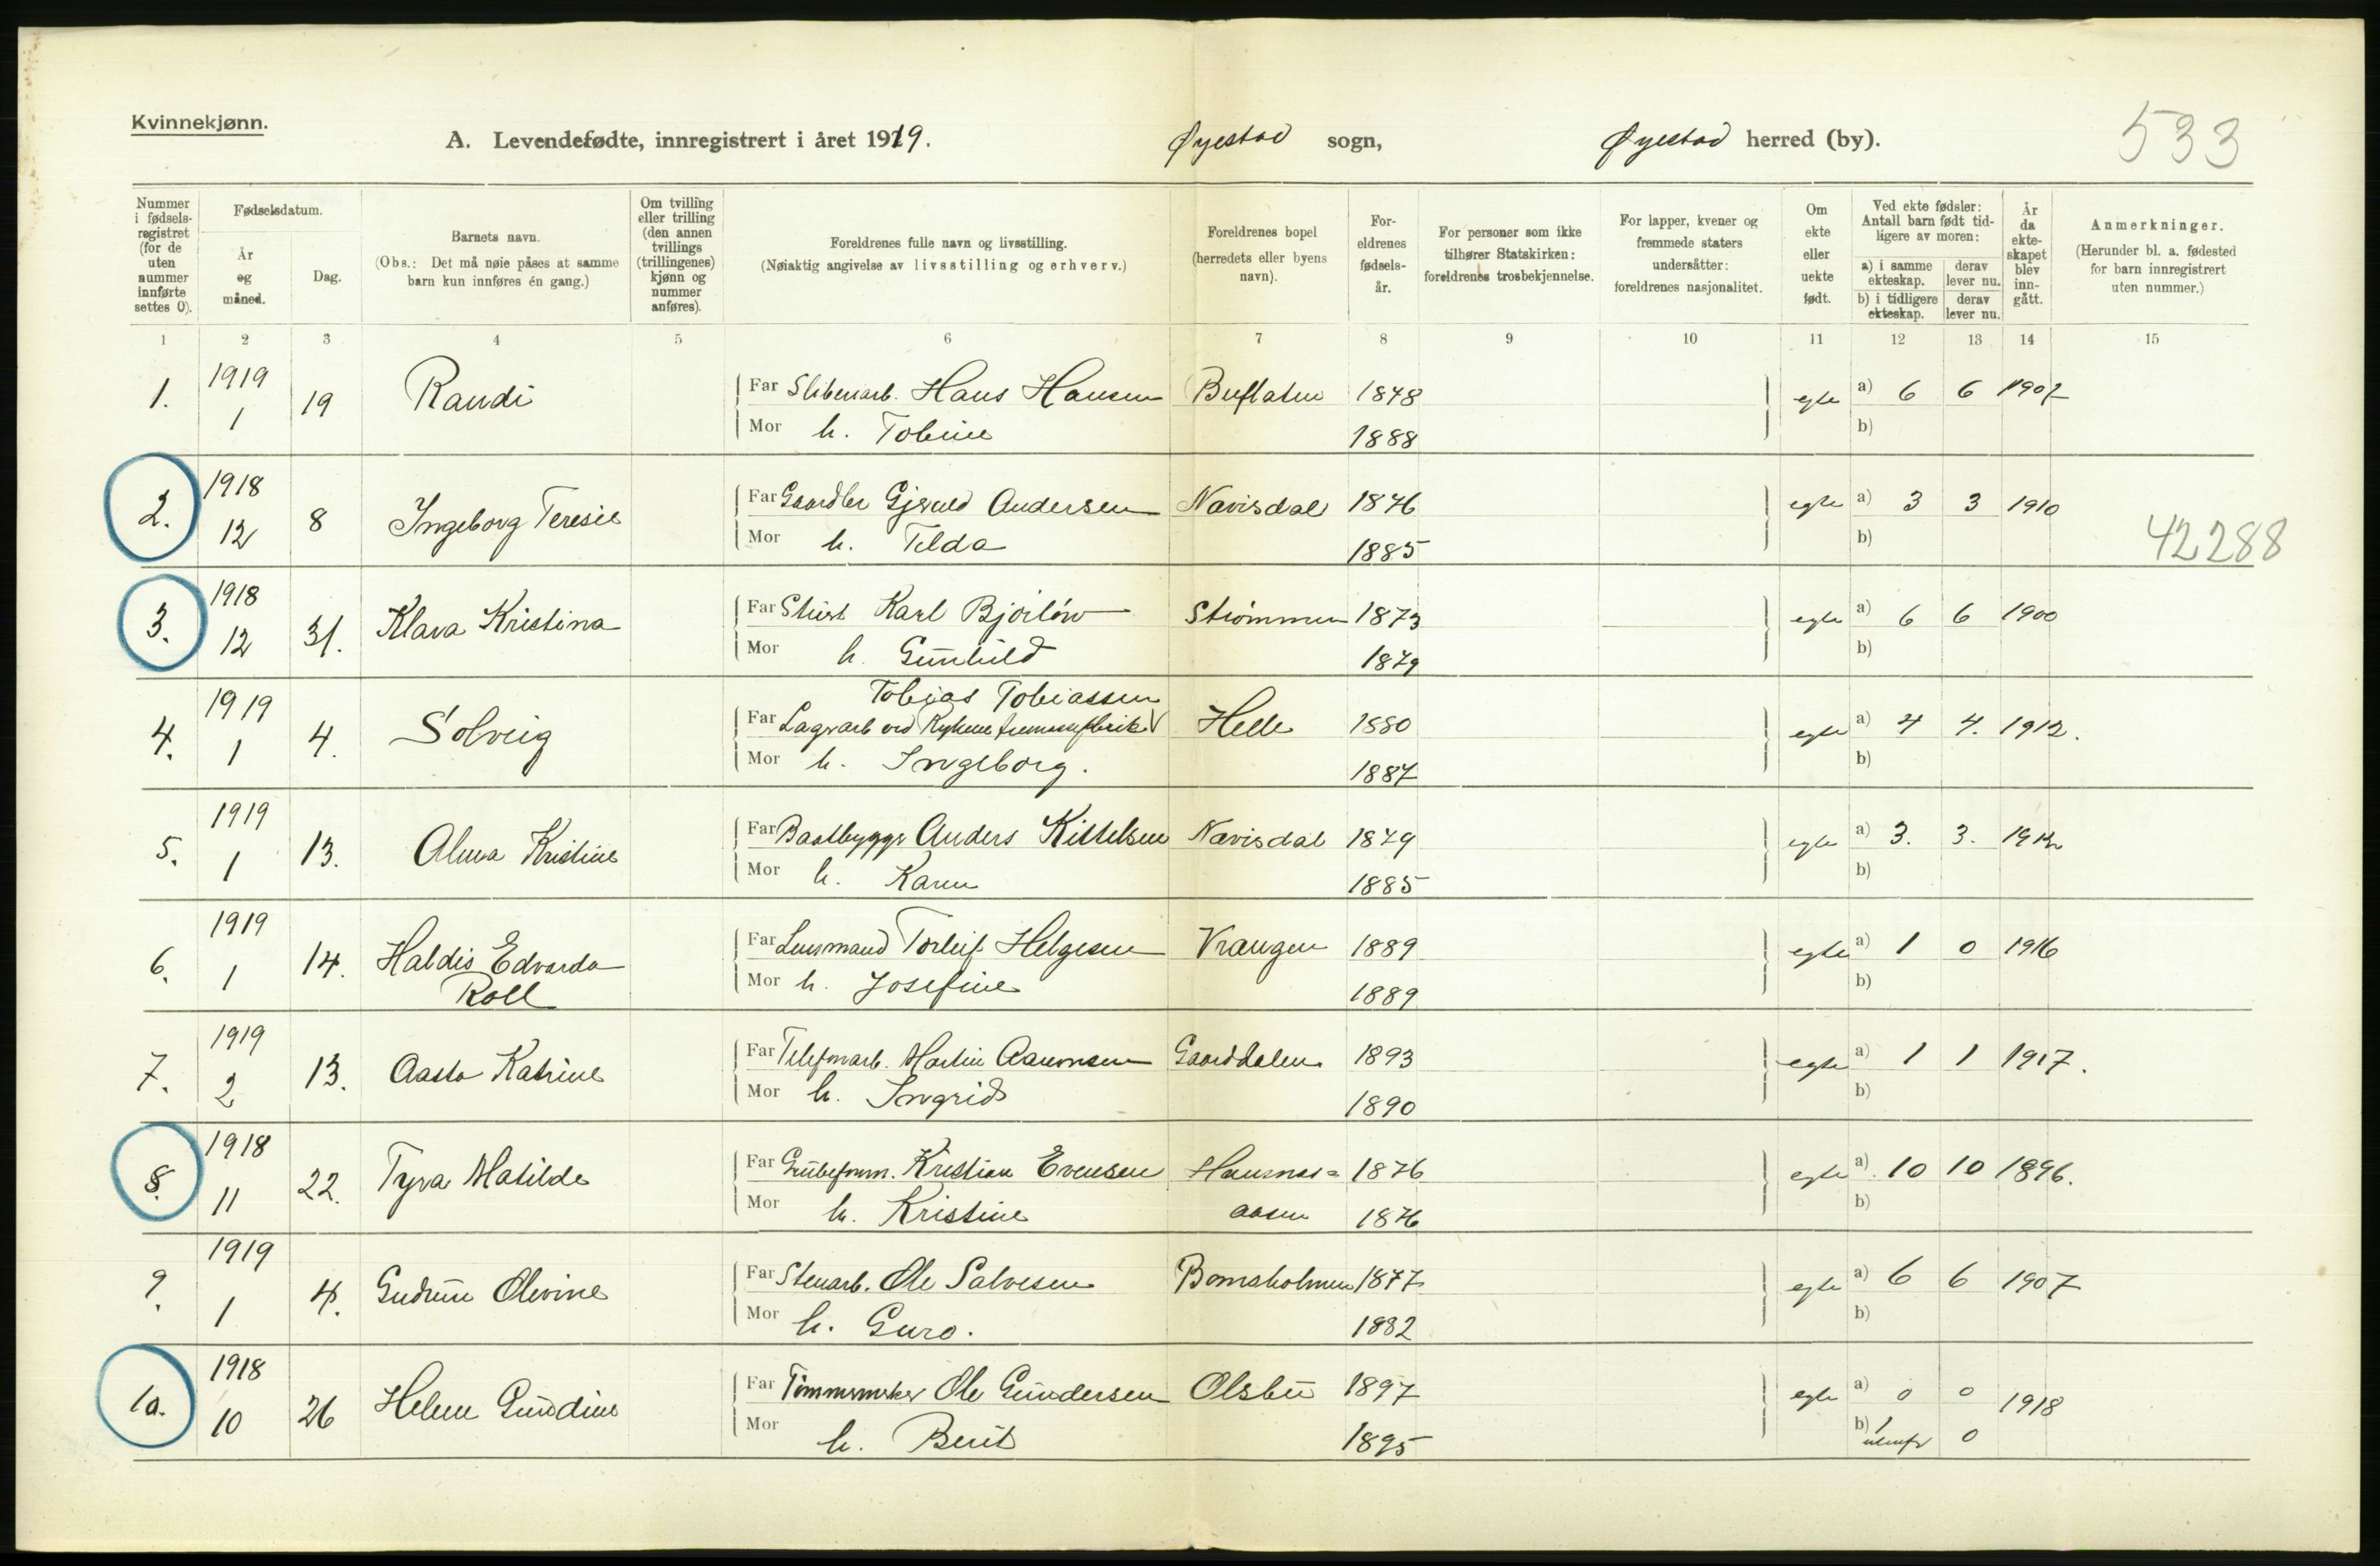 Kvinnekjønn.
A. Levendefødte, innregistrert i året 1919. Øyestad sogn, Øyestad herred (by). 533
Nummer i fødsels-registret (for de uten nummer innførte settes 0).
Fødselsdatum.
År og måned.
Dag.
Barnets navn.
(Obs.: Det må nøie påses at samme barn kun innføres én gang.)
Om tvilling eller trilling (den annen tvillings (trillingenes) kjønn og nummer anføres).
Foreldrenes fulle navn og livsstilling.
(Nøiaktig angivelse av livsstilling og erhverv.)
Foreldrenes bopel (herredets eller byens navn).
For-eldrenes fødsels-år.
For personer som ikke tilhører Statskirken: foreldrenes trosbekjennelse.
For lapper, kvener og fremmede staters undersåtter: foreldrenes nasjonalitet.
Om ekte eller uekte født.
Ved ekte fødsler: Antall barn født tid-ligere av moren:
a) i samme ekteskap. derav lever nu.
b) i tidligere ekteskap. derav lever nu.
År da ekte-skapet blev inn-gått.
Anmerkninger.
(Herunder bl. a. fødested for barn innregistrert uten nummer.)
1 2 3 4 5 6 7 8 9 10 11 12 13 14 15
1. 1919 1 19 Randi Far Sliberiarb. Hans Hansen Buflaten 1848 egte a) 6 6 1907
Mor h. Tobine 1888 b)
2. 1918 12 8 Ingeborg Teresie Far Gaardbr Gjeruld Andersen Nævisdal 1876 egte a) 3 3 1910
Mor h. Telda 1885 b) 42288
3. 1918 12 31. Klara Kristina Far Karl Bjorlöw Strømmen 1873 egte a) 6 6 1900
Mor h. Gunhild 1879 b)
Tobias Tobiassen
4. 1919 1 4. Solveig Far Lagrarb ved Rykene Helle 1880 egte a) 4 4. 1912.
Mor h. Ingeborg. 1887 b)
5. 1919 1 13. Alma Kristine Far Baatbyggr Anders Kittelsen Nævisdal 1879 egte a) 3. 3. 1912
Mor h. Karen 1885 b)
6. 1919 1 14. Haldis Edvarda Roll Far Lensmand Torleif Helgesen Vrangen 1889 egte a) 1 0 1916
Mor h. Josefine 1889 b)
7. 1919 2 13. Aasta Katrine Far Telefonarb. Martin Aanonsen Gaarddalen 1893 egte a) 1 1 1917.
Mor h. Ingrid 1890 b)
8. 1918 11 22. Tyra Matilde Far Grubeform. Kristian Evensen Hausnas= 1876 egte a) 10 10 1896.
Mor h. Kristine aasen 1876 b)
9. 1919 1 4. Gudrun Olivine Far Stenarb. Ole Salvesen Bomsholmen 1877 egte a) 6 6 1907
Mor h. Guro. 1882 b)
10. 1918 10 26 Helene Gundine Far Tømmermker Ole Gundersen Olsbu 1897 egte a) 0 0 1918
Mor h. Berit 1895 b) 1 0